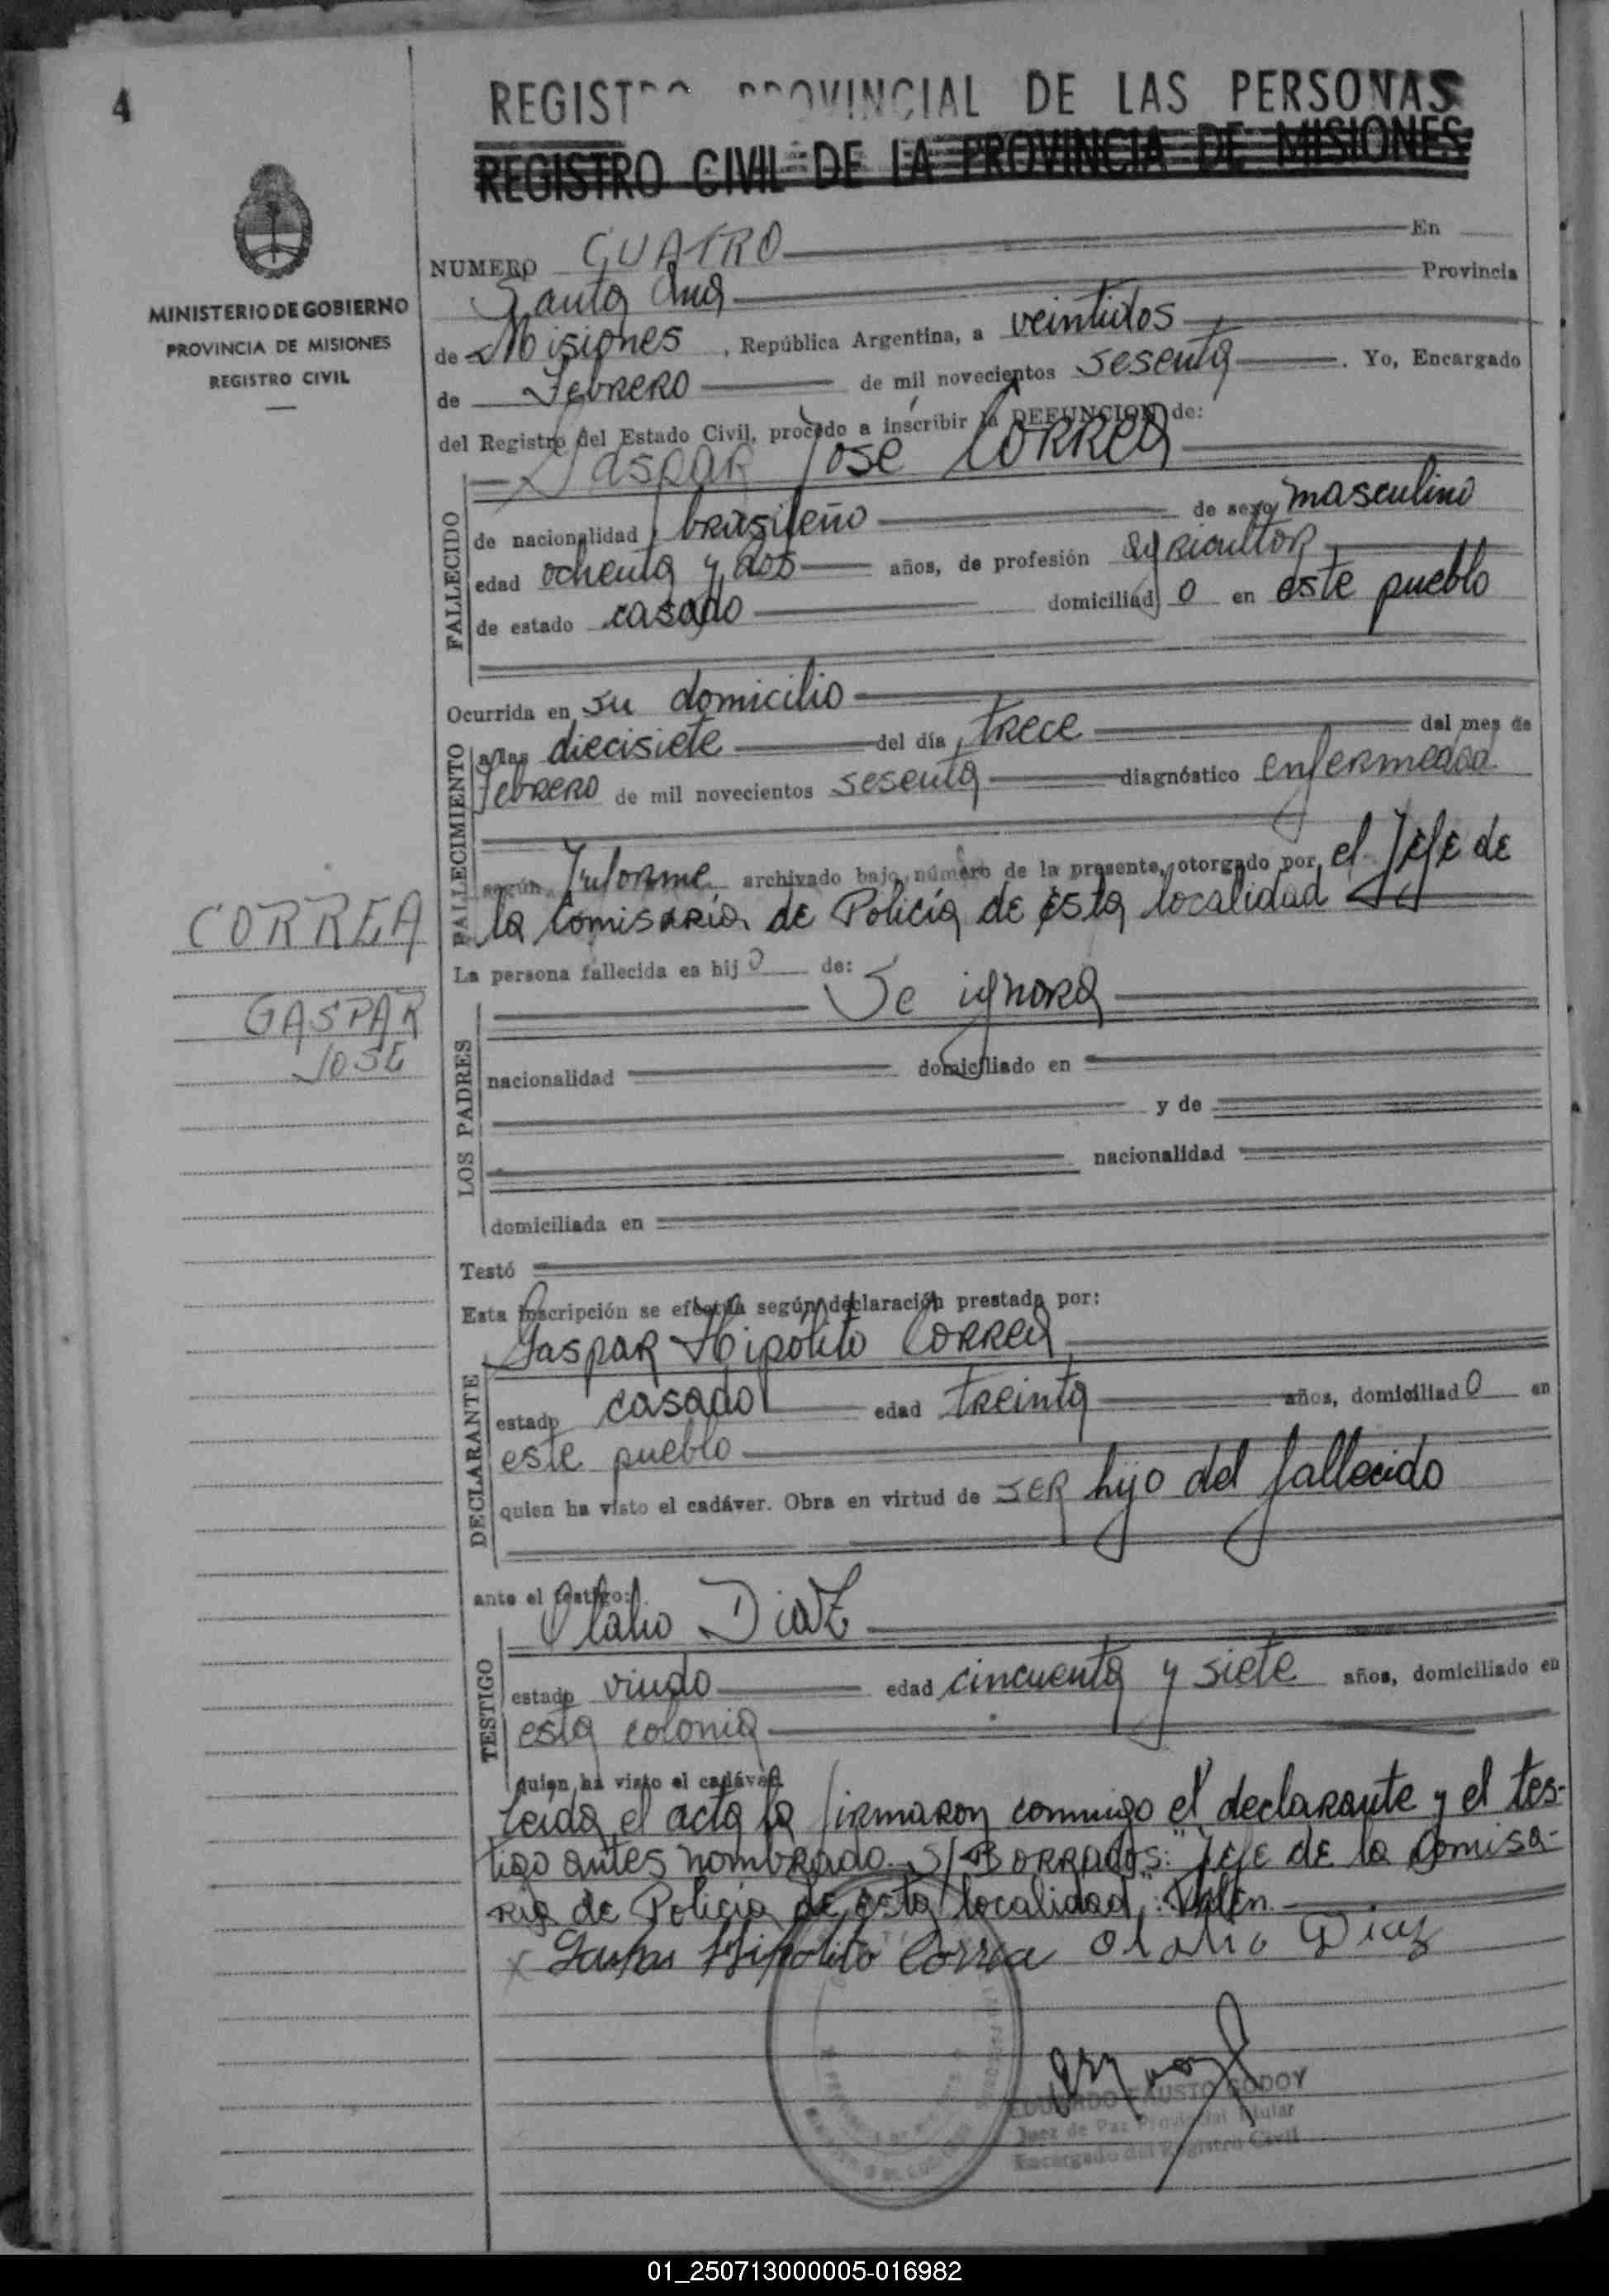 4
REGISTRO PROVINCIAL DE LAS PERSONAS
REGISTRO CIVIL DE LA PROVINCIA DE MISIONES
MINISTERIO DE GOBIERNO
PROVINCIA DE MISIONES
REGISTRO CIVIL
NUMERO CUATRO En
Santa Ana Provincia
de Misiones, República Argentina, a veintidos
de Febrero de mil novecientos sesenta. Yo, Encargado
del Registro del Estado Civil, procedo a inscribir la DEFUNCION de:
Gaspar José Correa
FALLECIDO
de nacionalidad brasileño de sexo masculino
edad ochenta y dos años, de profesión agricultor
de estado casado domiciliado en este pueblo
Ocurrida en su domicilio
FALLECIMIENTO
a las diecisiete del día trece del mes de
Febrero de mil novecientos sesenta diagnóstico enfermedad
según Informe archivado bajo número de la presente, otorgado por el Jefe de
la Comisaría de Policía de esta localidad
CORREA
GASPAR
JOSE
La persona fallecida es hijo de:
Se ignora
LOS PADRES
nacionalidad domiciliado en
y de
nacionalidad
domiciliada en
Testó
Esta inscripción se efectúa según declaración prestada por:
Gaspar Hipolito Correa
DECLARANTE
estado casado edad treinta años, domiciliado en
este pueblo
quien ha visto el cadáver. Obra en virtud de ser hijo del fallecido
ante el testigo:
Olalio Diaz
TESTIGO
estado viudo edad cincuenta y siete años, domiciliado en
esta colonia
quien ha visto el cadáver.
Leida el acta la firmaron conmigo el declarante y el tes-
tigo antes nombrado. S/Borrados: "Jefe de la Comisa-
ria de Policía de esta localidad": Valen.
x Gaspar Hipolito Correa Olalio Diaz
EDUARDO FAUSTO GODOY
Juez de Paz Provincial Titular
Encargado del Registro Civil
01_250713000005-016982